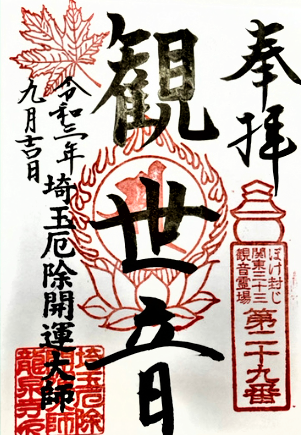 奉拝
ぼけ封じ
関東三十三
観音霊場
第二十九番
観世音
令和三年
九月吉日
埼玉厄除開運大師
埼玉厄除